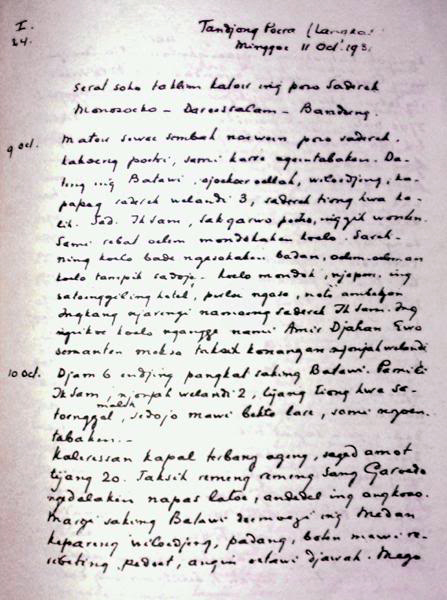 I.
24.
Tandjong Poera (Langka
Minggoe 11 Oct. 193
serat soho taklim katoer ing poro saderek
Monosoeko - Daroessalam - Bandung.
9 Oct. Matoer sewoe sembah noewoen poro saderek,
kakoeng poetri, sami karso ngentabaken. Da-
teng ing Batawi, sjoekoer oellah, wiloedjeng, ka-
papag saderek welandi 3, saderek tiong hwa ka-
lih. Sad. Iksam, sakgarwo poetro, inggih wonten.
Sami rebat oelem mondokaken koelo. Sareh-
ning koelo bade ngasokaken badan, oelem-oeleman
koelo tampik sadojo. Koelo mondok, njepen, ing
satoenggiling hotel, perloe ngaso,
ingkang njarengi namoeng saderek Iksam. Ing
ngrikoe koelo ngangge nami Amir Djahan Ewo
semanten mekso taksih konangan njonjah welandi
10 Oct. Djam 6 endjing pangkat saking Batawi. Famili
Iksam, njonjah welandi 2, tijang tiong hwa sa-
toenggal, malih sedojo mawi bekto lare, sami ngoen-
tabaken.-
Kaleressan kapal terbang ageng, saged amot
tijang 20. Taksih remeng remeng sang Garoedo
ngedalaken napas latoe, andedel ing angkoso.
Margi saking Batawi doemoegi ing Medan
kepareng wiloedjeng, padang, boten mawi re-
ribeting pedoet, angin oetawi djawah. Mego